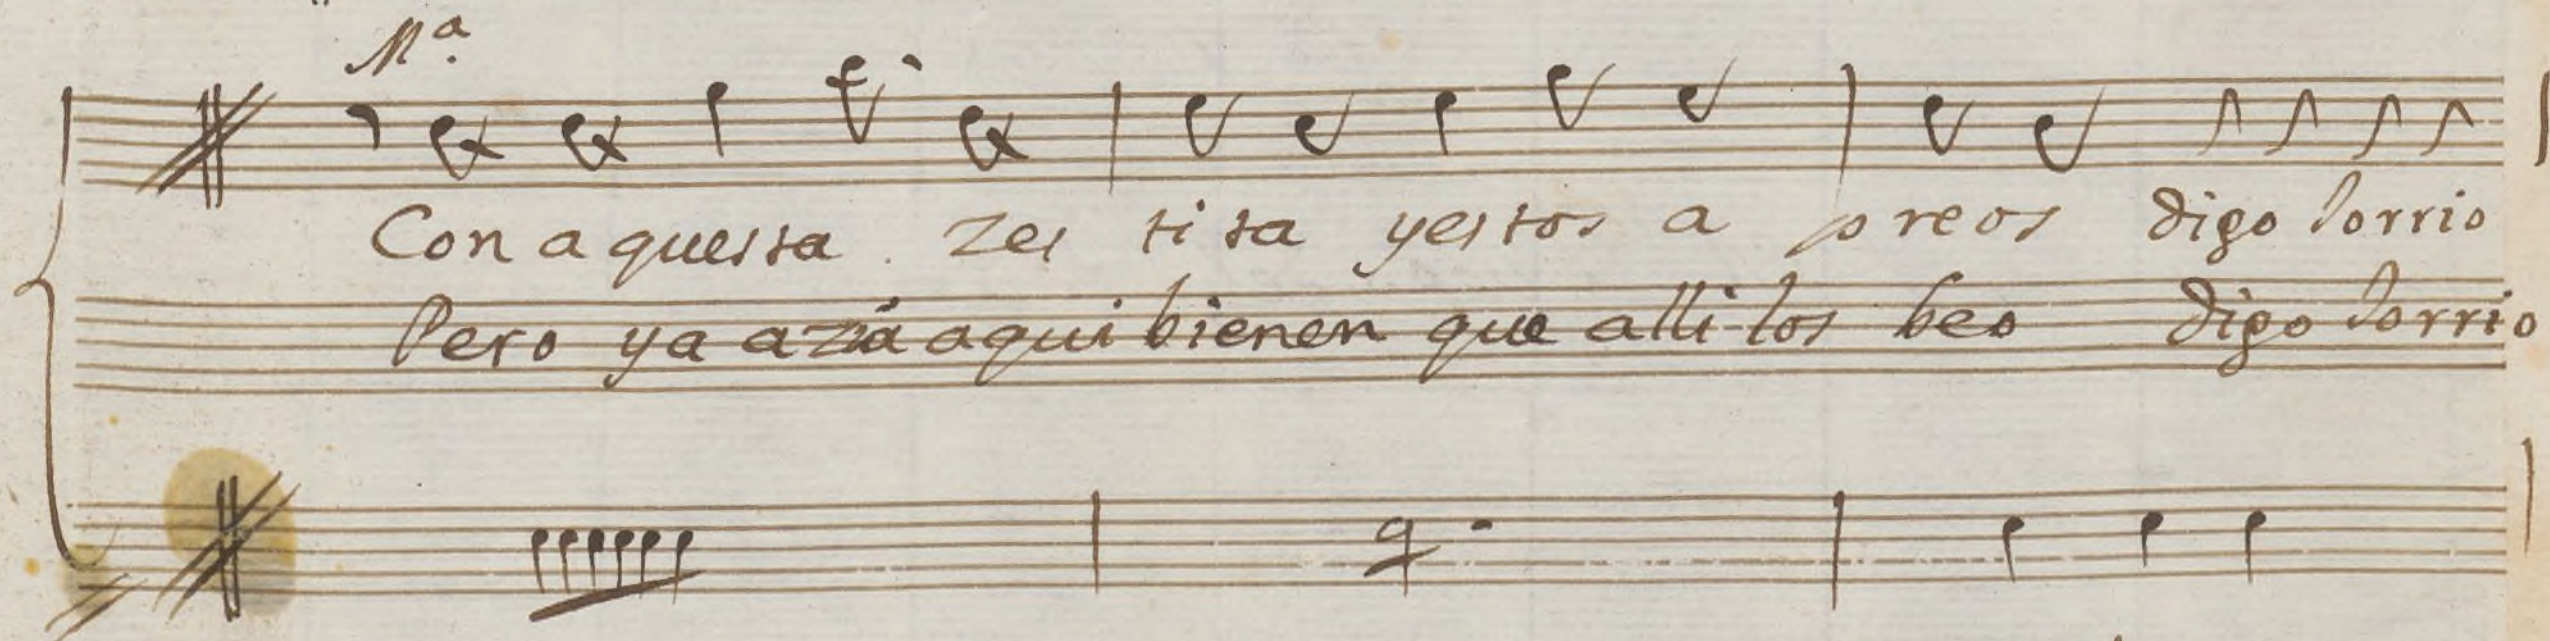 Mª.
Con aquesta zestita yestos apreos digo Lorrio
Pero ya azia aqui bienen que alli los beo digo Lorrio